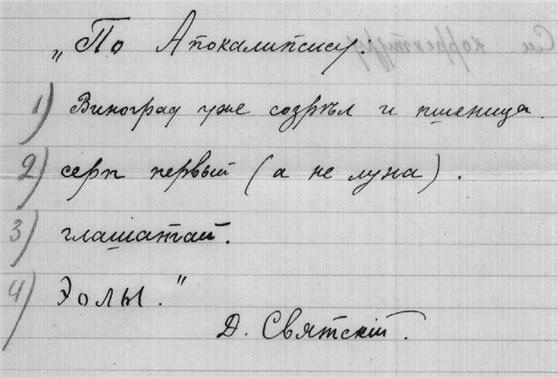 „По Апокалипсису:
1) Виноград уже созрѣл и пшеница.
2) серп первый (а не луна).
3) глашатай.
4) Эолы."
Д. Святскій.